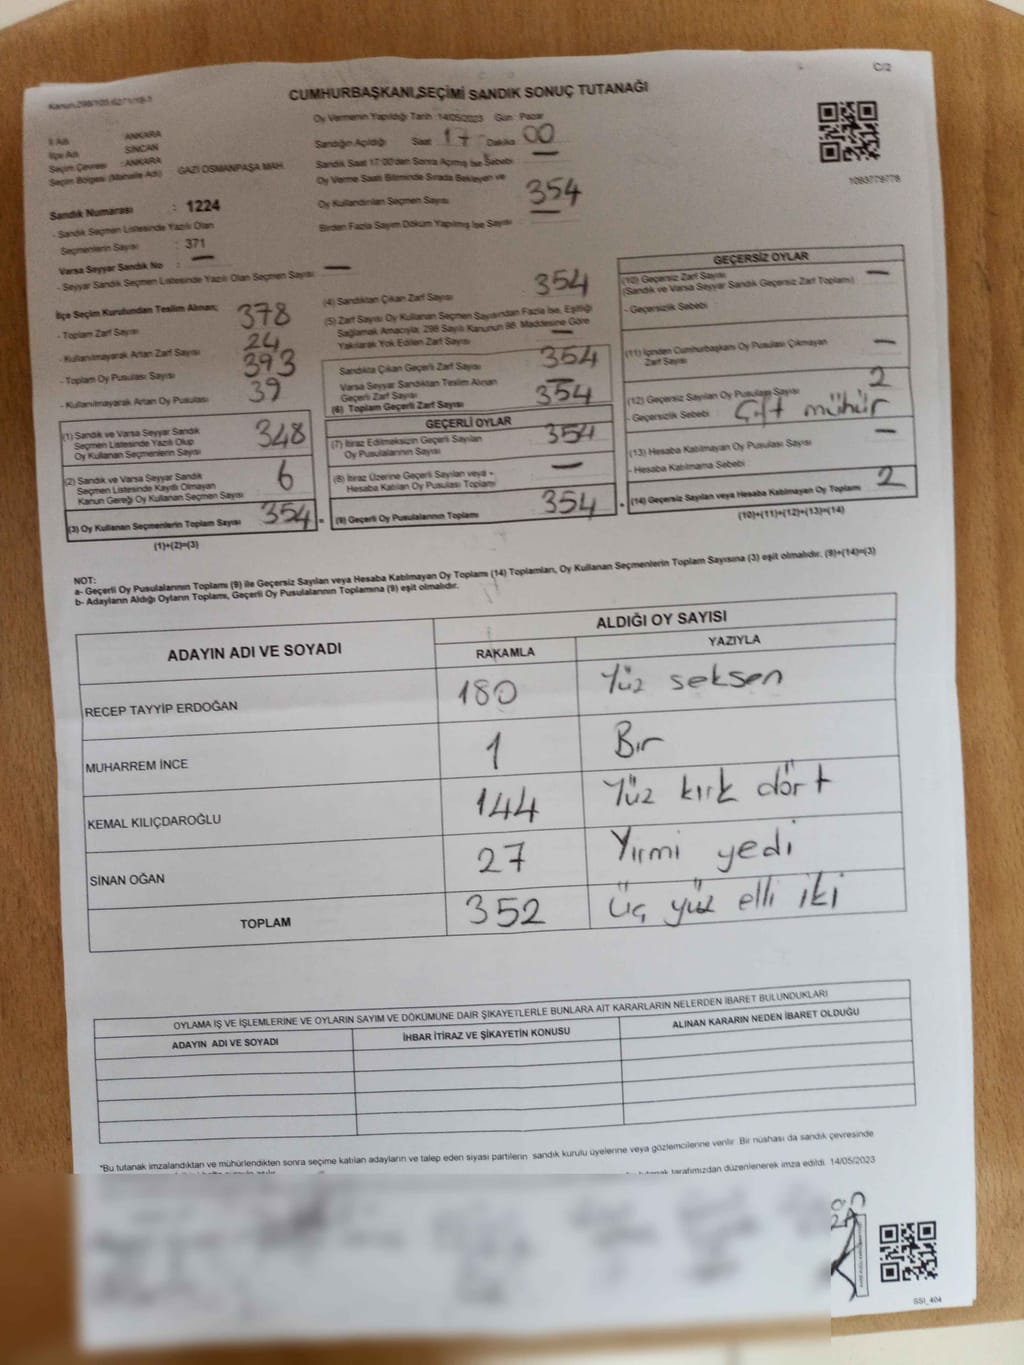 C/2
Kanun:298/105,6271/18-1
CUMHURBAŞKANI SEÇİMİ SANDIK SONUÇ TUTANAĞI
Oy Vermenin Yapıldığı Tarih :14/05/2023 Gün : Pazar
İl Adı : ANKARA
İlçe Adı : SİNCAN
Seçim Çevresi : ANKARA
Seçim Bölgesi (Mahalle Adı) GAZİ OSMANPAŞA MAH.
Sandığın Açıldığı Saat 17 : Dakika 00
Sandık Saat 17:00'den Sonra Açmış İse Sebebi : —
Oy Verme Saati Bitiminde Sırada Bekleyen ve
Oy Kullandırılan Seçmen Sayısı 354
Birden Fazla Sayım Döküm Yapılmış İse Sayısı : —
1093779778
Sandık Numarası : 1224
- Sandık Seçmen Listesinde Yazılı Olan
Seçmenlerin Sayısı : 371
Varsa Seyyar Sandık No : —
- Seyyar Sandık Seçmen Listesinde Yazılı Olan Seçmen Sayısı : —
İlçe Seçim Kurulundan Teslim Alınan;
- Toplam Zarf Sayısı 378
- Kullanılmayarak Artan Zarf Sayısı 24
- Toplam Oy Pusulası Sayısı 393
- Kullanılmayarak Artan Oy Pusulası 39
(1) Sandık ve Varsa Seyyar Sandık
Seçmen Listesinde Yazılı Olup
Oy Kullanan Seçmenlerin Sayısı 348
(2) Sandık ve Varsa Seyyar Sandık
Seçmen Listesinde Kayıtlı Olmayan
Kanun Gereği Oy Kullanan Seçmen Sayısı 6
(3) Oy Kullanan Seçmenlerin Toplam Sayısı 354 =
(1)+(2)=(3)
(4) Sandıktan Çıkan Zarf Sayısı 354
(5) Zarf Sayısı Oy Kullanan Seçmen Sayısından Fazla İse, Eşitliği
Sağlamak Amacıyla, 298 Sayılı Kanunun 98. Maddesine Göre
Yakılarak Yok Edilen Zarf Sayısı —
Sandıkta Çıkan Geçerli Zarf Sayısı 354
Varsa Seyyar Sandıktan Teslim Alınan
Geçerli Zarf Sayısı —
(6) Toplam Geçerli Zarf Sayısı 354
GEÇERLİ OYLAR
(7) İtiraz Edilmeksizin Geçerli Sayılan
Oy Pusulalarının Sayısı 354
(8) İtiraz Üzerine Geçerli Sayılan veya
Hesaba Katılan Oy Pusulası Toplamı —
(9) Geçerli Oy Pusulalarının Toplamı 354 +
GEÇERSİZ OYLAR
(10) Geçersiz Zarf Sayısı —
(Sandık ve Varsa Seyyar Sandık Geçersiz Zarf Toplamı)
- Geçersizlik Sebebi :
(11) İçinden Cumhurbaşkanı Oy Pusulası Çıkmayan
Zarf Sayısı —
(12) Geçersiz Sayılan Oy Pusulası Sayısı 2
- Geçersizlik Sebebi : Çift mühür
(13) Hesaba Katılmayan Oy Pusulası Sayısı —
- Hesaba Katılmama Sebebi :
(14) Geçersiz Sayılan veya Hesaba Katılmayan Oy Toplamı 2
(10)+(11)+(12)+(13)=(14)
NOT:
a- Geçerli Oy Pusulalarının Toplamı (9) ile Geçersiz Sayılan veya Hesaba Katılmayan Oy Toplamı (14) Toplamları, Oy Kullanan Seçmenlerin Toplam Sayısına (3) eşit olmalıdır. (9)+(14)=(3)
b- Adayların Aldığı Oyların Toplamı, Geçerli Oy Pusulalarının Toplamına (9) eşit olmalıdır.
ADAYIN ADI VE SOYADI
ALDIĞI OY SAYISI
RAKAMLA YAZIYLA
RECEP TAYYİP ERDOĞAN 180 Yüz seksen
MUHARREM İNCE 1 Bir
KEMAL KILIÇDAROĞLU 144 Yüz kırk dört
SİNAN OĞAN 27 Yirmi yedi
TOPLAM 352 Üç yüz elli iki
OYLAMA İŞ VE İŞLEMLERİNE VE OYLARIN SAYIM VE DÖKÜMÜNE DAİR ŞİKAYETLERLE BUNLARA AİT KARARLARIN NELERDEN İBARET BULUNDUKLARI
ADAYIN ADI VE SOYADI İHBAR İTİRAZ VE ŞİKAYETİN KONUSU ALINAN KARARIN NEDEN İBARET OLDUĞU
*Bu tutanak imzalandıktan ve mühürlendikten sonra seçime katılan adayların ve talep eden siyasi partilerin sandık kurulu üyelerine veya gözlemcilerine verilir. Bir nüshası da sandık çevresinde
tutanak tarafımızdan düzenlenerek imza edildi. 14/05/2023
SSI_404